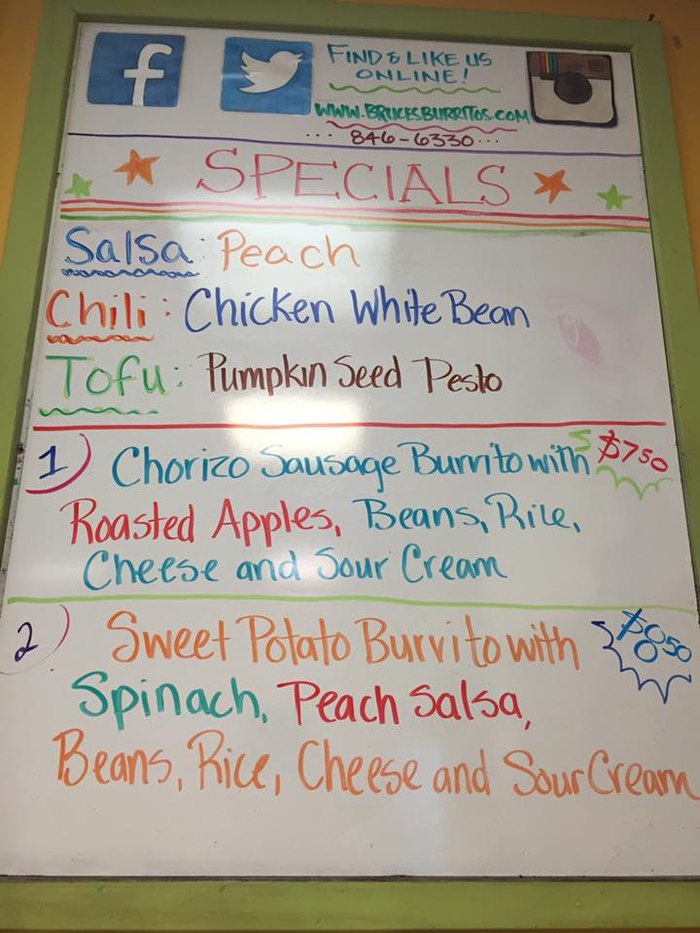 f
FIND & LIKE US
ONLINE!
WWW.BRUCESBURRITOS.COM
... 846-6330...
SPECIALS
Salsa: Peach
Chili: Chicken White Bean
Tofu: Pumpkin Seed Pesto
1) Chorizo Sausage Burrito with $7.50
Roasted Apples, Beans, Rice,
Cheese and Sour Cream
2) Sweet Potato Burrito with
Spinach, Peach Salsa,
Beans, Rice, Cheese and Sour Cream